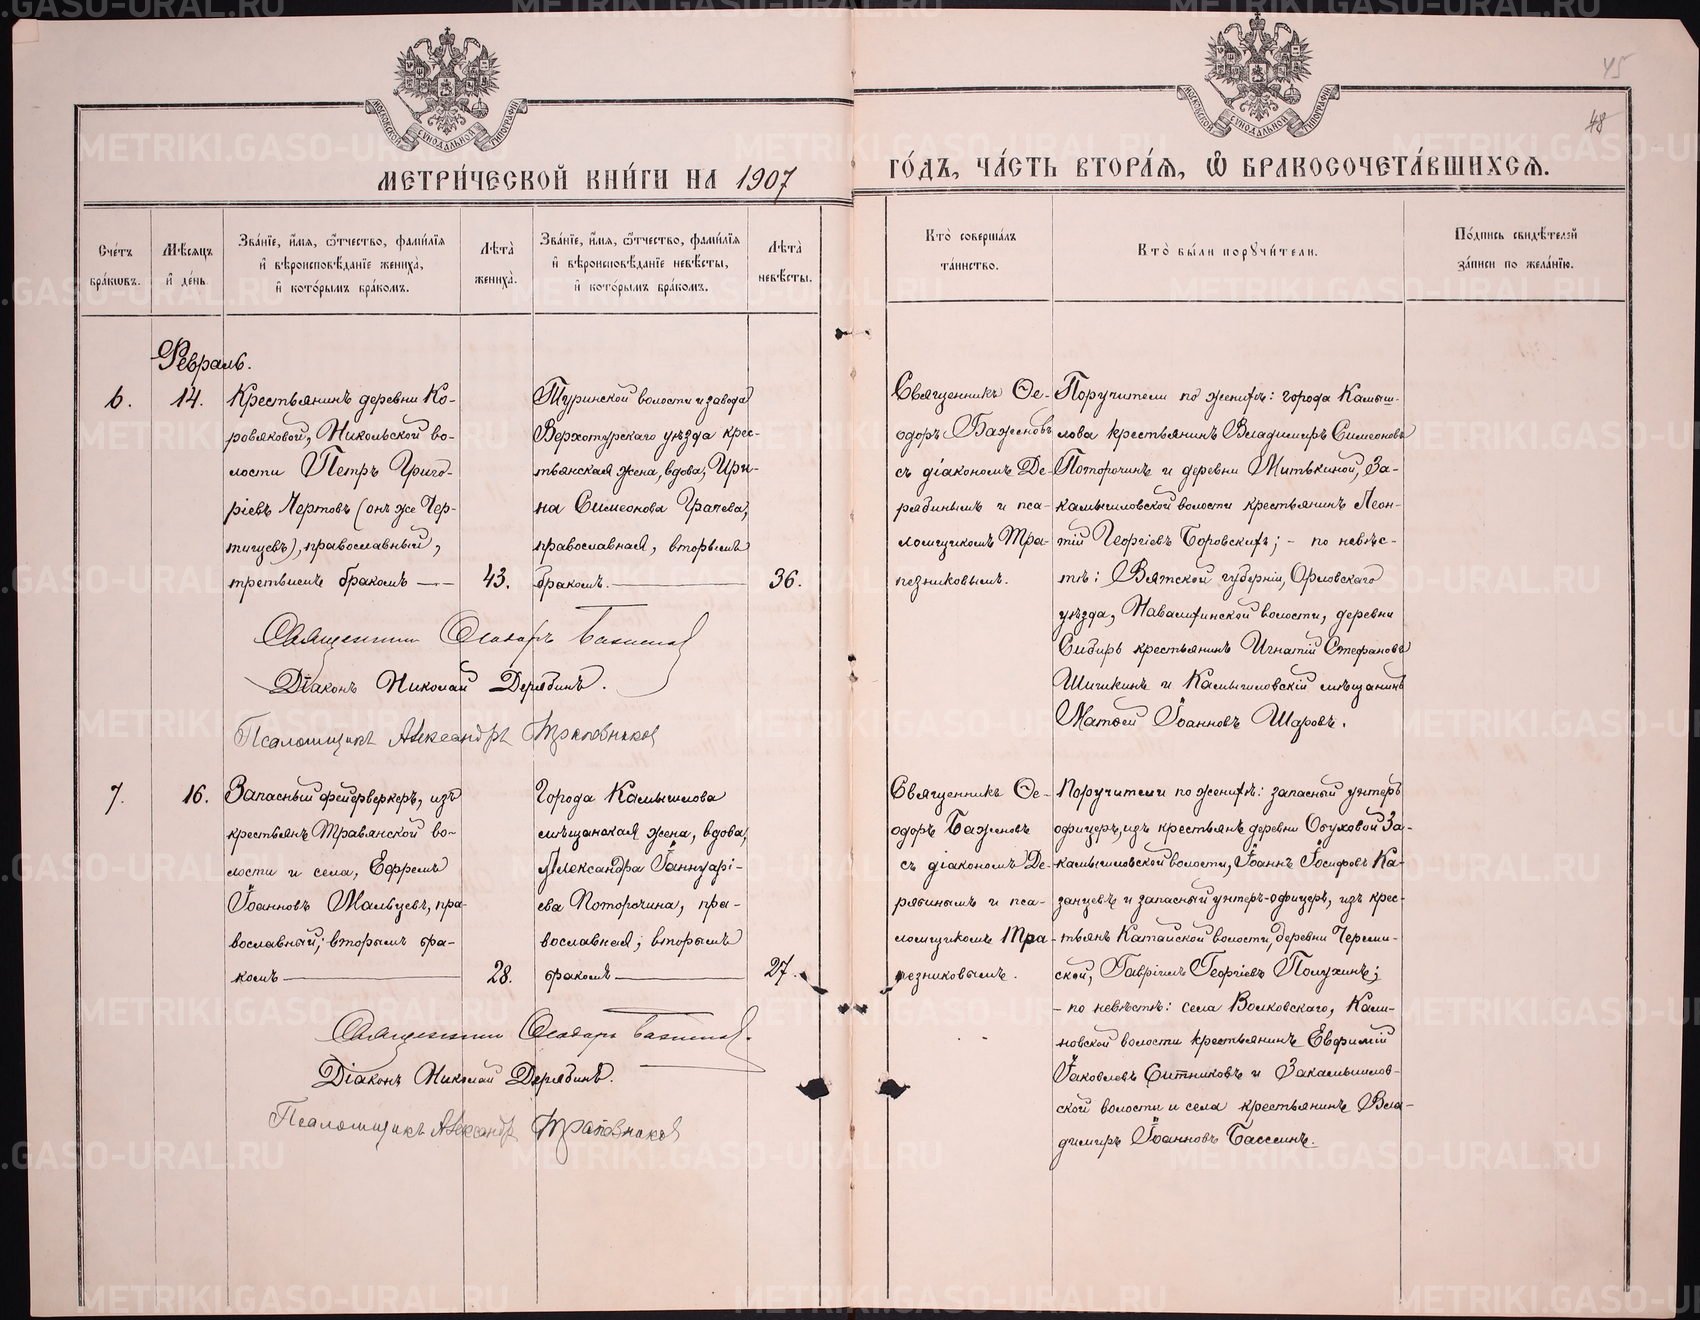 45
48
МОСКОВСКОЙ СѴНОДАЛЬНОЙ ТИПОГРАФІИ
МОСКОВСКОЙ СѴНОДАЛЬНОЙ ТИПОГРАФІИ
МЕТРИ́ЧЕСКОЙ КНИ́ГИ НА 1907 ГО́ДЪ, ЧА́СТЬ ВТОРА́Я, Ѡ БРАКОСОЧЕТА́ВШИХСЯ.
Сче́тъ бра́кωвъ.
Мѣ́сяцъ и҆ де́нь
Зва́нїе, и҆́мя, ѻ҆́тчество, фами́лїя и҆ вѣроисповѣ́данїе жениха̀, и҆ кото́рымъ бра́комъ.
Лѣ́та жениха̀.
Зва́нїе, и҆́мя, ѻ҆́тчество, фами́лїя и҆ вѣроисповѣ́данїе невѣ́сты, и҆ кото́рымъ бра́комъ.
Лѣ́та невѣ́сты.
Кто̀ соверша́лъ та́инство.
Кто̀ бы́ли порꙋчи́тели.
По́дпись свидѣ́телей за́писи по жела́нїю.
Февраль.
6.
14.
Крестьянинъ деревни Ко-
ровяковой, Никольской во-
лости Петръ Григо-
ріевъ Чертовъ (онъ же Чер-
тищевъ), православный,
третьимъ бракомъ —
43.
Туринской волости и завода
Верхотурскаго уѣзда крес-
тьянская жена, вдова, Ири-
на Симеонова Грачева,
православная, вторымъ
бракомъ. —
36.
Священникъ Ѳе-
одоръ Баженовъ
съ діакономъ Де-
рябинымъ и пса-
ломщикомъ Тра-
пезниковымъ.
Поручители по женихѣ: города Камыш-
лова крестьянинъ Владимиръ Симеоновъ
Поторочинъ и деревни Митькиной, За-
камышловской волости крестьянинъ Леон-
тій Георгіевъ Боровскихъ; – по невѣс-
тѣ: Вятской губерніи, Орловскаго
уѣзда, Навалихинской волости, деревни
Сибирь крестьянинъ Игнатій Стефановъ
Шишкинъ и Камышловскій мѣщанинъ
Матѳей Іоанновъ Шаровъ.
Священникъ Ѳеодоръ Баженовъ
Діаконъ Николай Дерябинъ.
Псаломщикъ Александръ Трапезниковъ
7.
16.
Запасный фейерверкеръ, изъ
крестьянъ Травянской во-
лости и села, Ефремъ
Іоанновъ Мальцевъ, пра-
вославный; вторымъ бра-
комъ —
28.
Города Камышлова
мѣщанская жена, вдова,
Александра Іаннуарі-
ева Поторочина, пра-
вославная; вторымъ
бракомъ —
27.
Священникъ Ѳе-
одоръ Баженовъ
съ діакономъ Де-
рябинымъ и пса-
ломщикомъ Тра-
пезниковымъ.
Поручители по женихѣ: запасный унтеръ
офицеръ, изъ крестьянъ деревни Обуховой За-
камышловской волости, Іоаннъ Іосифовъ Ка-
занцевъ и запасный унтеръ-офицеръ, изъ крес-
тьянъ Катайской волости, деревни Череми-
ской, Гавріилъ Георгіевъ Полухинъ;
– по невѣстѣ: села Волковскаго, Кали-
новской волости крестьянинъ Евфимій
Іаковлевъ Ситниковъ и Закамышлов-
ской волости и села крестьянинъ Вла-
димиръ Іоанновъ Бассинъ.
Священникъ Ѳеодоръ Баженовъ.
Діаконъ Николай Дерябинъ.
Псаломщикъ Александръ Трапезниковъ
METRIKI.GASO-URAL.RU